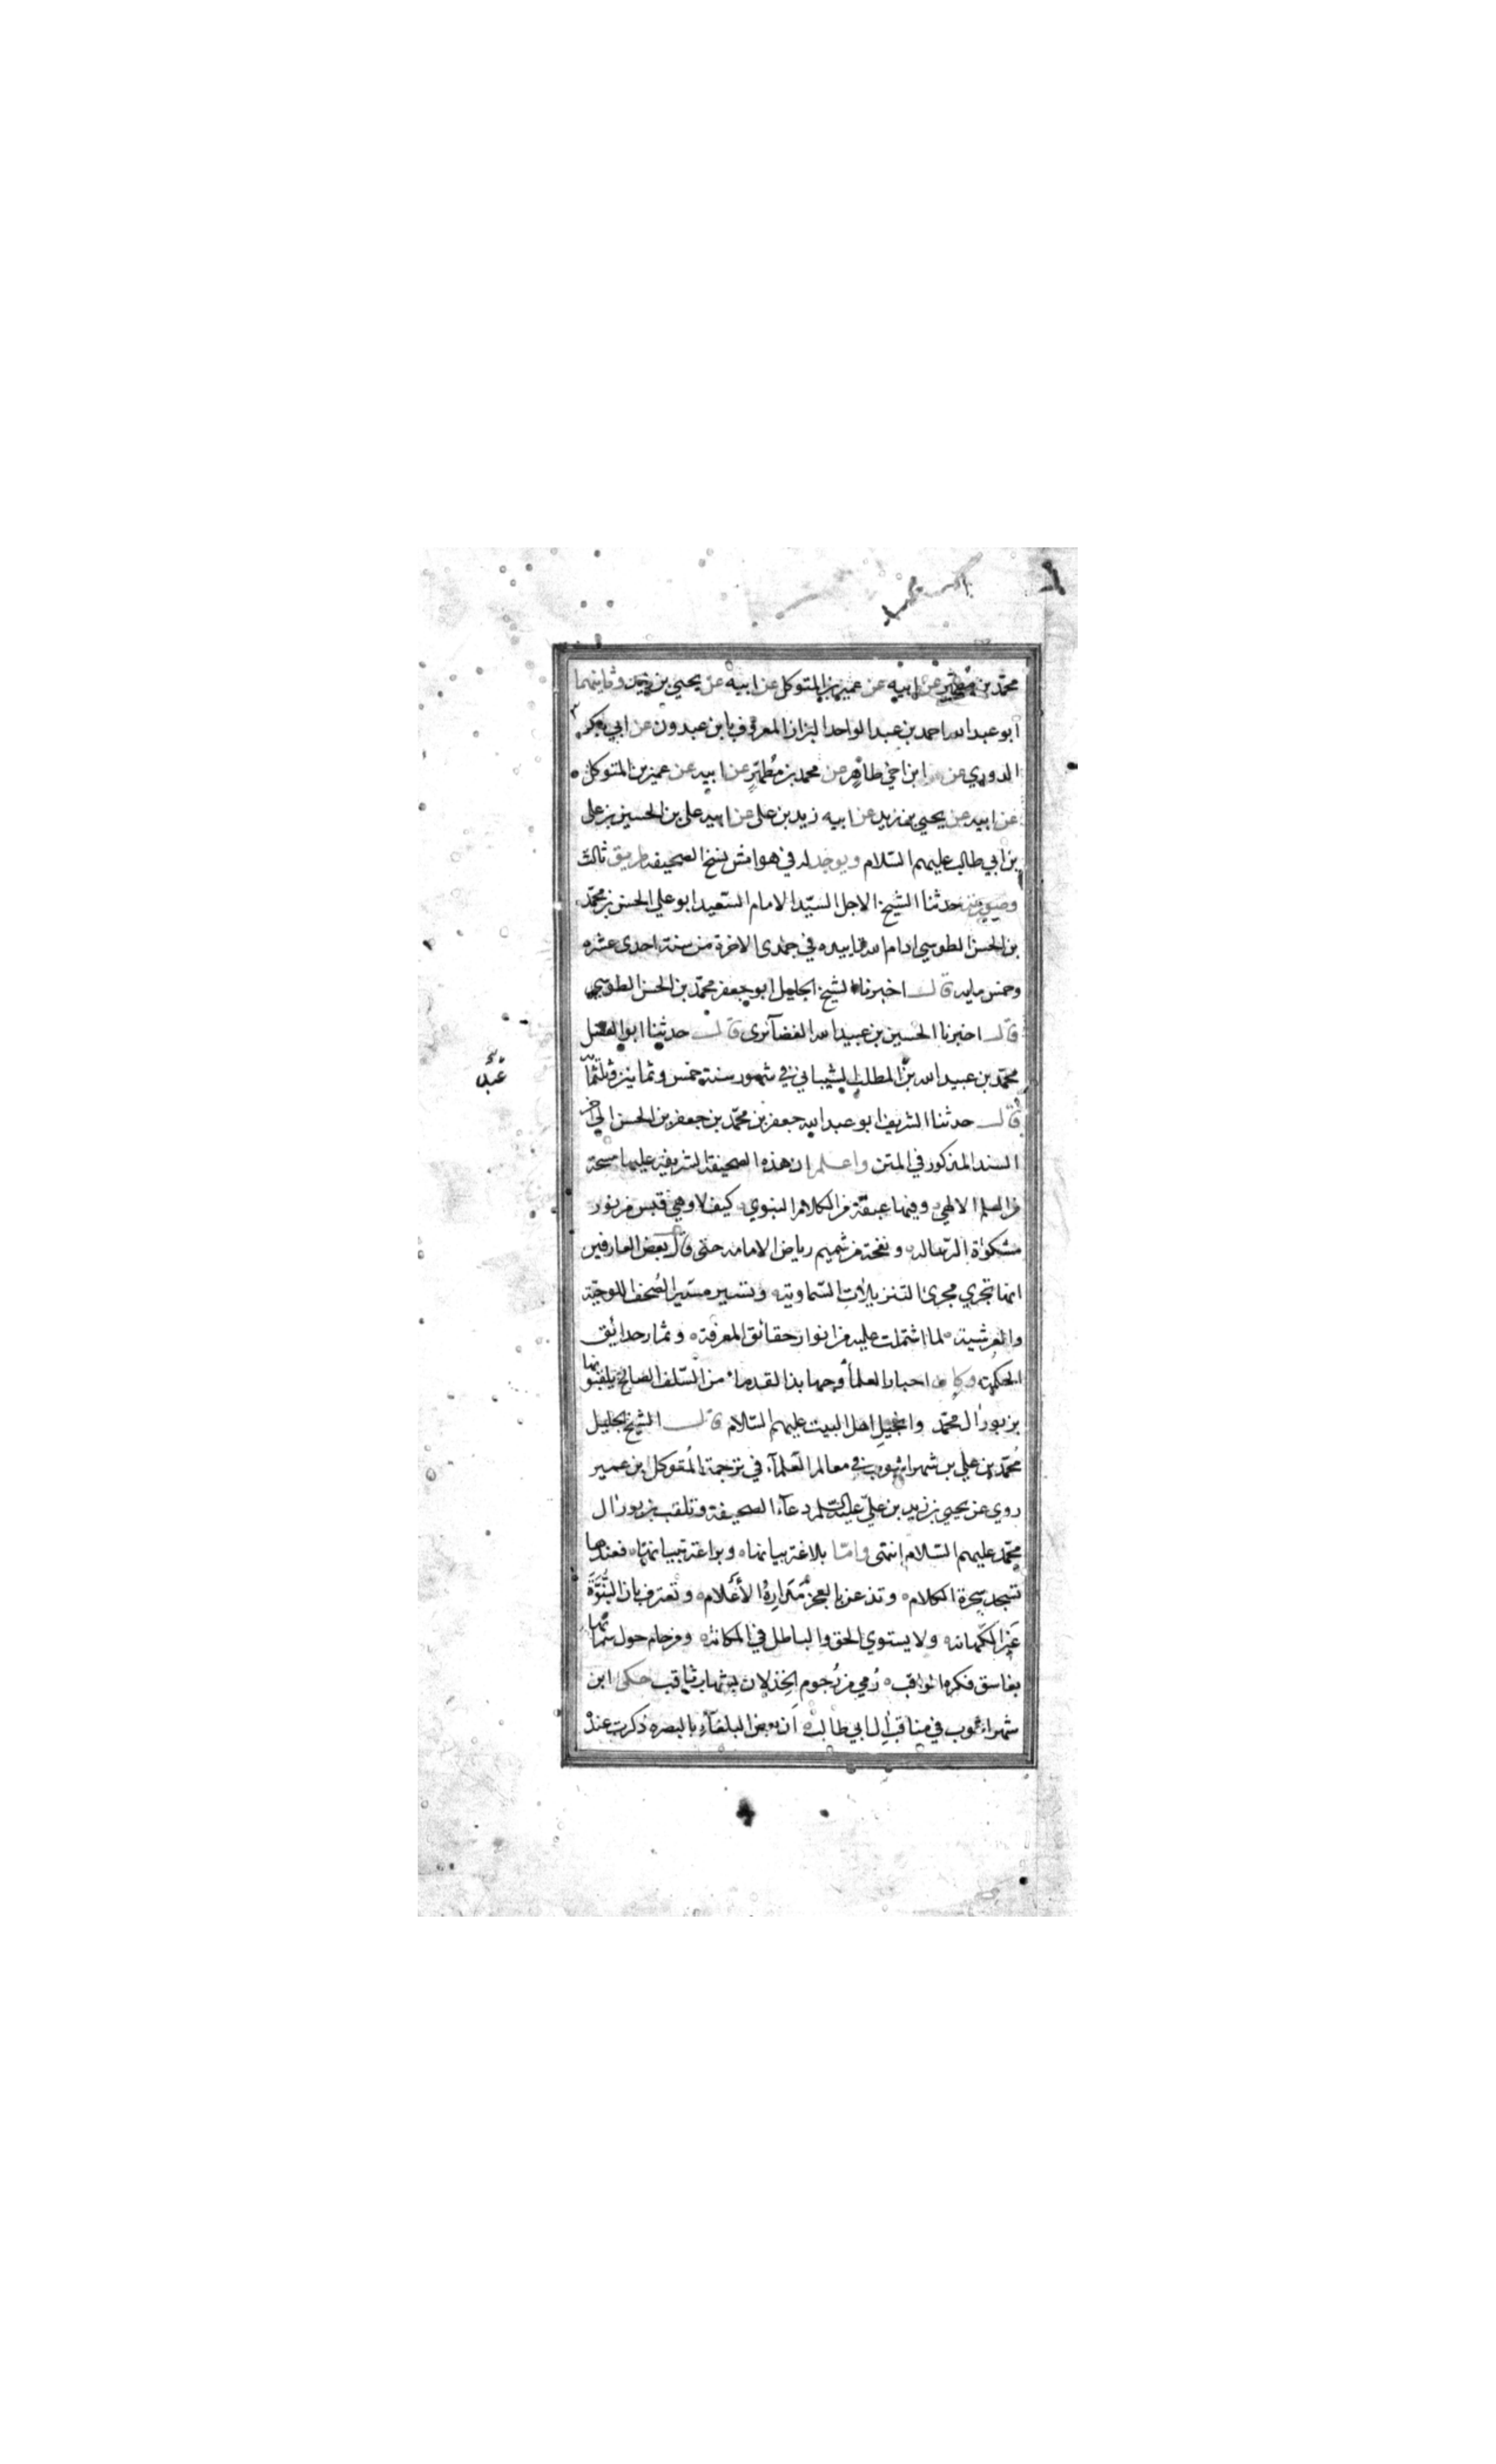 محمد بن مطهر عن ابيه عن عمير بن المتوكل عن ابيه عن يحيى بن زيد وثانيهما
ابو عبد الله احمد بن عبد الواحد البزاز المعروف بابن عبدون عن ابي بكر
الدوري عن ابن اخي طاهر عن محمد بن مُطهّرٍ عن ابيه عن عمير بن المتوكل
عن ابيه عن يحيى بن زيد عن ابيه زيد بن على عن ابيه على بن الحسين بن على
بن ابي طالب عليهم السّلام ويوجد له في هوامش نسخ الصحيفة طريق ثالث
وصورته حدثنا الشيخ الاجل السيّد الامام السّعيد ابو علي الحسن بن محمّد
بن الحسن الطوسي ادام الله تاييده في جمدى الاخرة من سنة احدى عشره
وخمس مايه قال اخبرنا الشيخ الجليل ابو جعفر محمّد بن الحسن الطوسي
قال اخبرنا الحسين بن عبيد الله الغضآئرى قال حدثنا ابو المفضل
محمّد بن عبيد الله بن المطلب الشيباني في شهور سنة خمس وثمانين وثلثمائة
قال حدثنا الشريف ابو عبد الله جعفر بن محمّد بن جعفر بن الحسن الى اخر
السند المذكور في المتن واعلم ان هذه الصحيفة الشريفة عليها مسحة
من العلم الالهي وفيها عبقة من الكلام النبوي كيف لا وهي قبس من نور
مشكوٰة الرّساله ونفحة من شميم رياض الامامه حتى قال بعض العارفين
انها تجري مجرىٰ التنزيلات السّماوية وتسير مسير الصُحف اللوحيّة
والعرشية لما اشتملت عليه من انوار حقائق المعرفة وثمار حدائق
الحكمة وكان احبار العلمآ وجهابذ القدمآ من السّلف الصالح يلقبونها
بزبور ال محمّد وانجيل اهل البيت عليهم السّلام قال الشيخ الجليل
مُحمّد بن علي بن شهراشوب في معالم العُلمآء في ترجمة المُتوكل بن عمير
روي عن يحيى بن زيد بن عليّ عليه السّلم دعآء الصحيفة وتلقب بزبور ال
محمّد عليهم السّلام إنتهى وامّا بلاغة بيانها وبراعة تبيانها فعندها
تسجد سحرة الكلام وتذعن بالعجز مَدارِهُ الأَعْلام وتعترف بان النُّبُوَّةَ
غير الكهانه ولا يستوي الحق والباطل في المكانة ومن حام حول سمائها
بغاسق فكره الواقب رُمي من رُجوم الخِذلان بشهاب ثاقب حكى ابن
شهراشوب في مناقب ال ابي طالب ان بعض البلغآء بالبصره ذكرت عنده
عبد